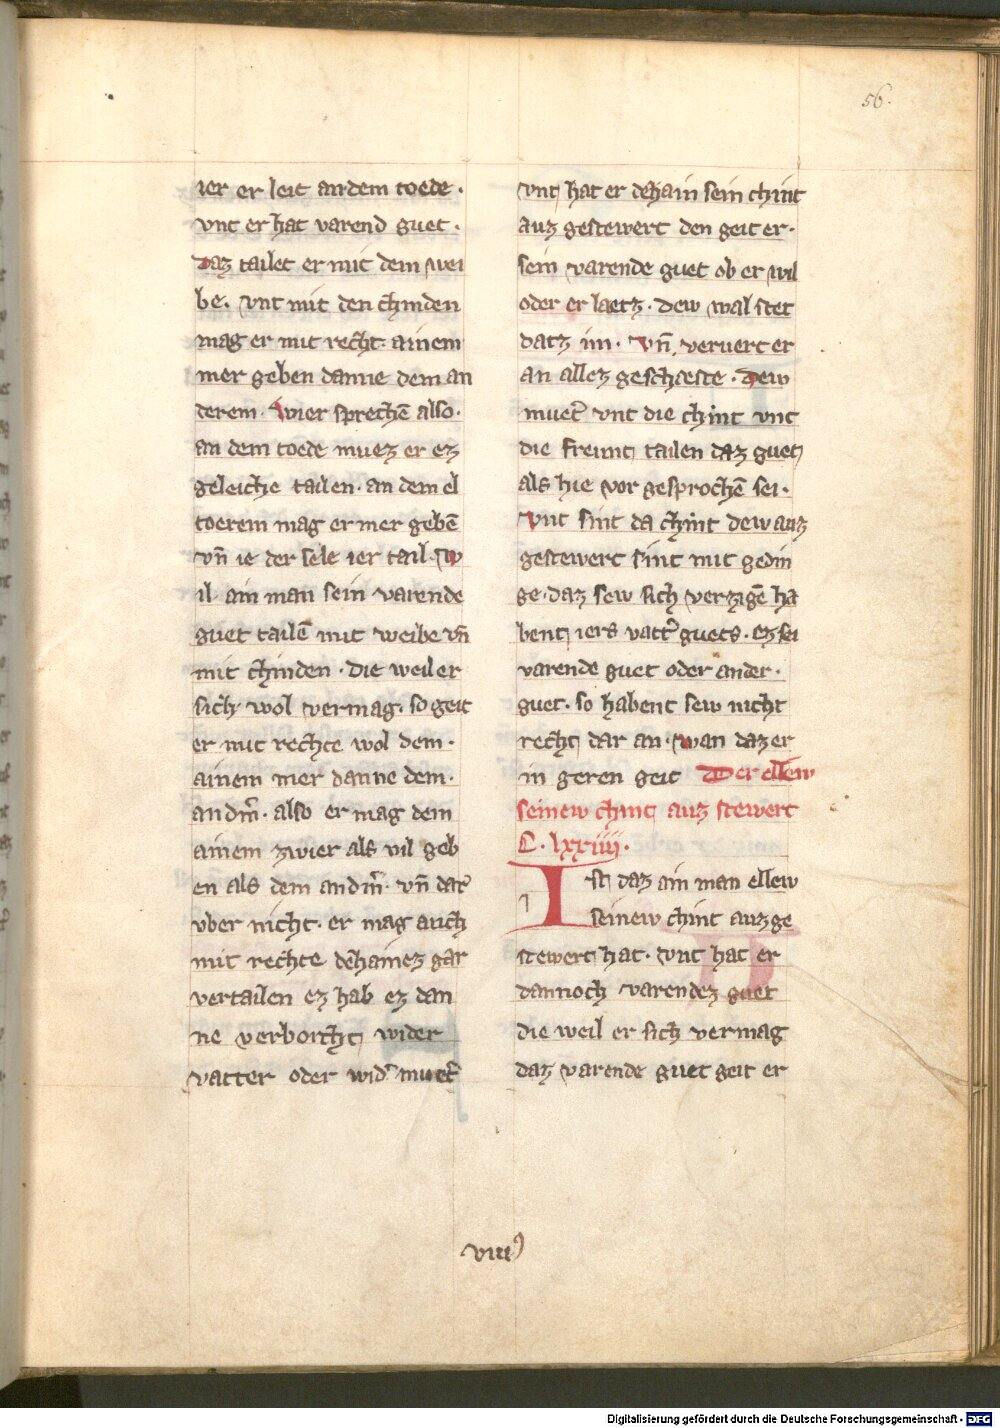 56.
ier er leit an dem toede ·
vnt er hat varend guet ·
Daz tailet er mit dem wei
be · vnt mit den chinden
mag er mit recht · ainem
mer geben danne dem an
derem · Wier sprechē also ·
an dem toede muez er ez
geleiche tailen · an dem el
toerem mag er mer gebē
vn̄ ie der sele ier tail · Sw
il ain man sein varende
guet tailē mit weibe vn̄
mit chinden · die weil er
sich wol vermag · so geit
er mit rechte wol dem ·
ainem mer danne dem ·
andm̄ · also er mag dem
ainem zwier als vil geb
en als dem andm̄ · vn̄ dar
vber nicht · er mag auch
mit rechte dehainez gar
vertailen ez hab ez dan
ne verborcht wider
vatter oder wid̾ muet̾
vnt hat er dehain sein chint
auz gestewert den geit er ·
sein varende guet ob er wil
oder er laetz · dew wal stet
datz im · Vn̄ veruert er
an allez geschefte · Dew
muet̾ vnt die chint vnt
die freunt tailen daz guet
als hie vor gesprochē sei ·
Vnt sint da chint dew auz
gestewert sint mit gedin
ge · daz sew sich verzigē ha
bent iers vatt̾ guets · ez sei
varende guet oder ander ·
guet · so habent sew nicht
recht dar an · wan daz er
in geren geit Der ellew
seinew chint auz stewert
C · lxxiiii ·
Ist daz ain man ellew
seinew chint auz ge
stewert hat · vnt hat er
dannoch varendez guet
die weil er sich vermag
daz varende guet geit er
viii
Digitalisierung gefördert durch die Deutsche Forschungsgemeinschaft - DFG